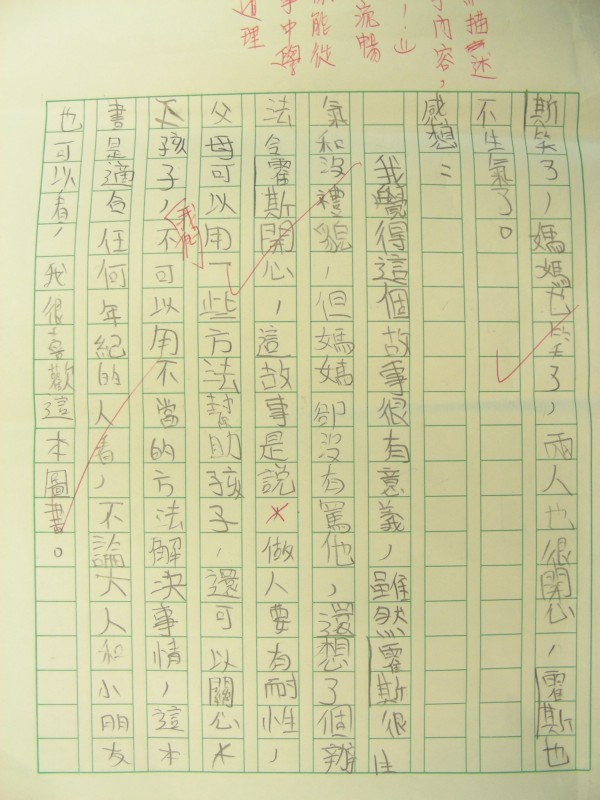 描述
內容，
流暢
能從
事中學
道理
斯笑了，媽媽也笑了，兩人也很開心，霍斯也
不生氣了。
感想：
我覺得這個故事很有意義，雖然霍斯很生
氣和沒禮貌，但媽媽卻沒有罵他，還想了個辦
法令霍斯開心，這故事是說做人要有耐性，
父母可以用一些方法幫助孩子，還可以關心
孩子，我們不可以用不當的方法解決事情，這本
書是適合任何年紀的人看，不論大人和小朋友
也可以看，我很喜歡這本圖書。